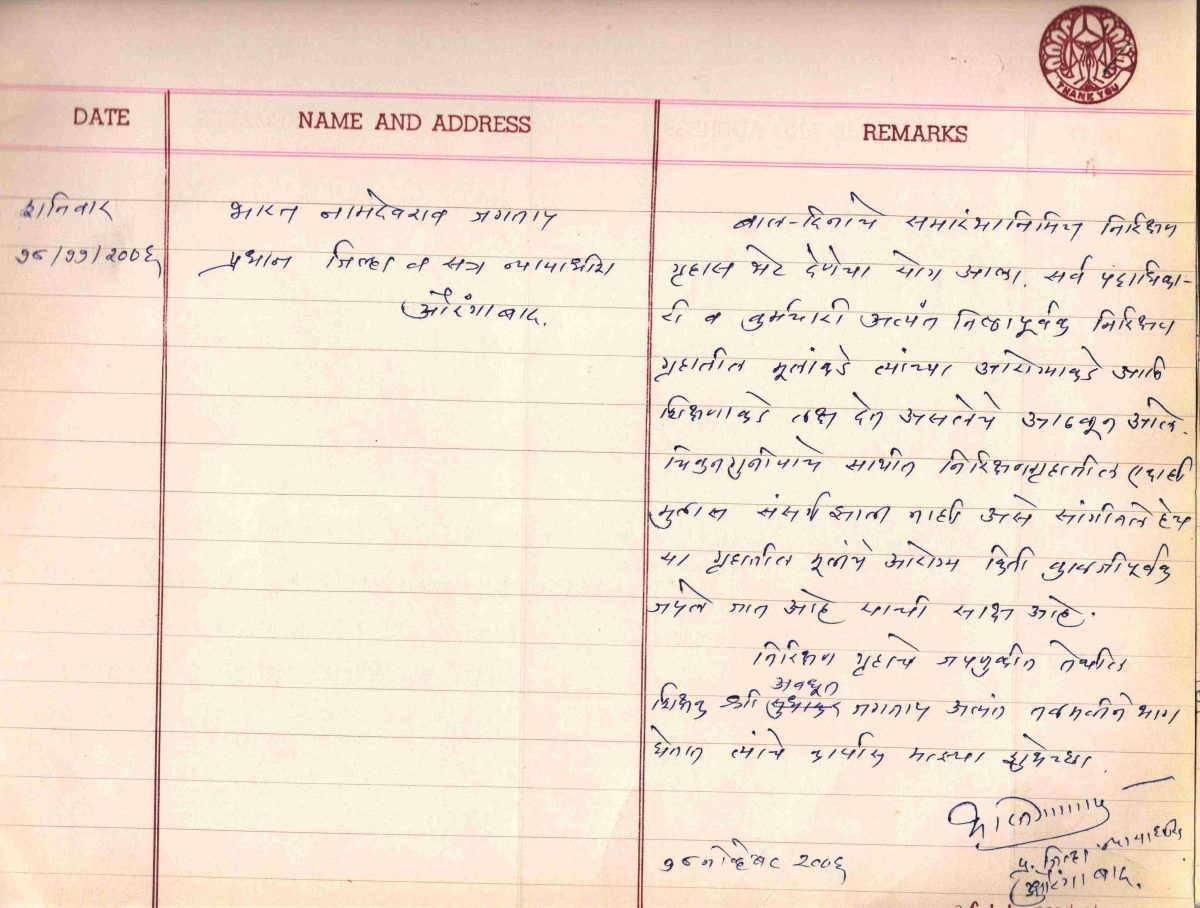 THANK YOU
DATE
NAME AND ADDRESS
REMARKS
शनिवार
१८/११/२००६
भारत नामदेवराव जगताप
प्रधान जिल्हा व सत्र न्यायाधीश
औरंगाबाद.
बाल-दिनाचे समारंभानिमित्त निरिक्षण
गृहास भेट देणेचा योग आला. सर्व पदाधिका-
री व कर्मचारी अत्यंत निष्ठापूर्वक निरिक्षण
गृहातील मूलांकडे त्यांच्या आरोग्याकडे आणि
शिक्षणाकडे लक्ष देत असलेचे आढळून आले.
चिकुनगुनीयाचे साथीत निरिक्षणगृहातील एकाही
मुलास संसर्ग झाला नाही असे सांगितले हेच
या गृहातील मूलांचे आरोग्य किती काळजीपूर्वक
जपले जात आहे याची साक्ष आहे.
निरिक्षण गृहाचे जपणुकीत तेथील
अवधूत
शिक्षक श्री सुधाकर जगताप अत्यंत तळमळीने भाग
घेतात त्यांचे कार्यास माझ्या शुभेच्छा.
प्र. जिल्हा न्यायाधीश
औरंगाबाद.
१८ नोव्हेंबर २००६